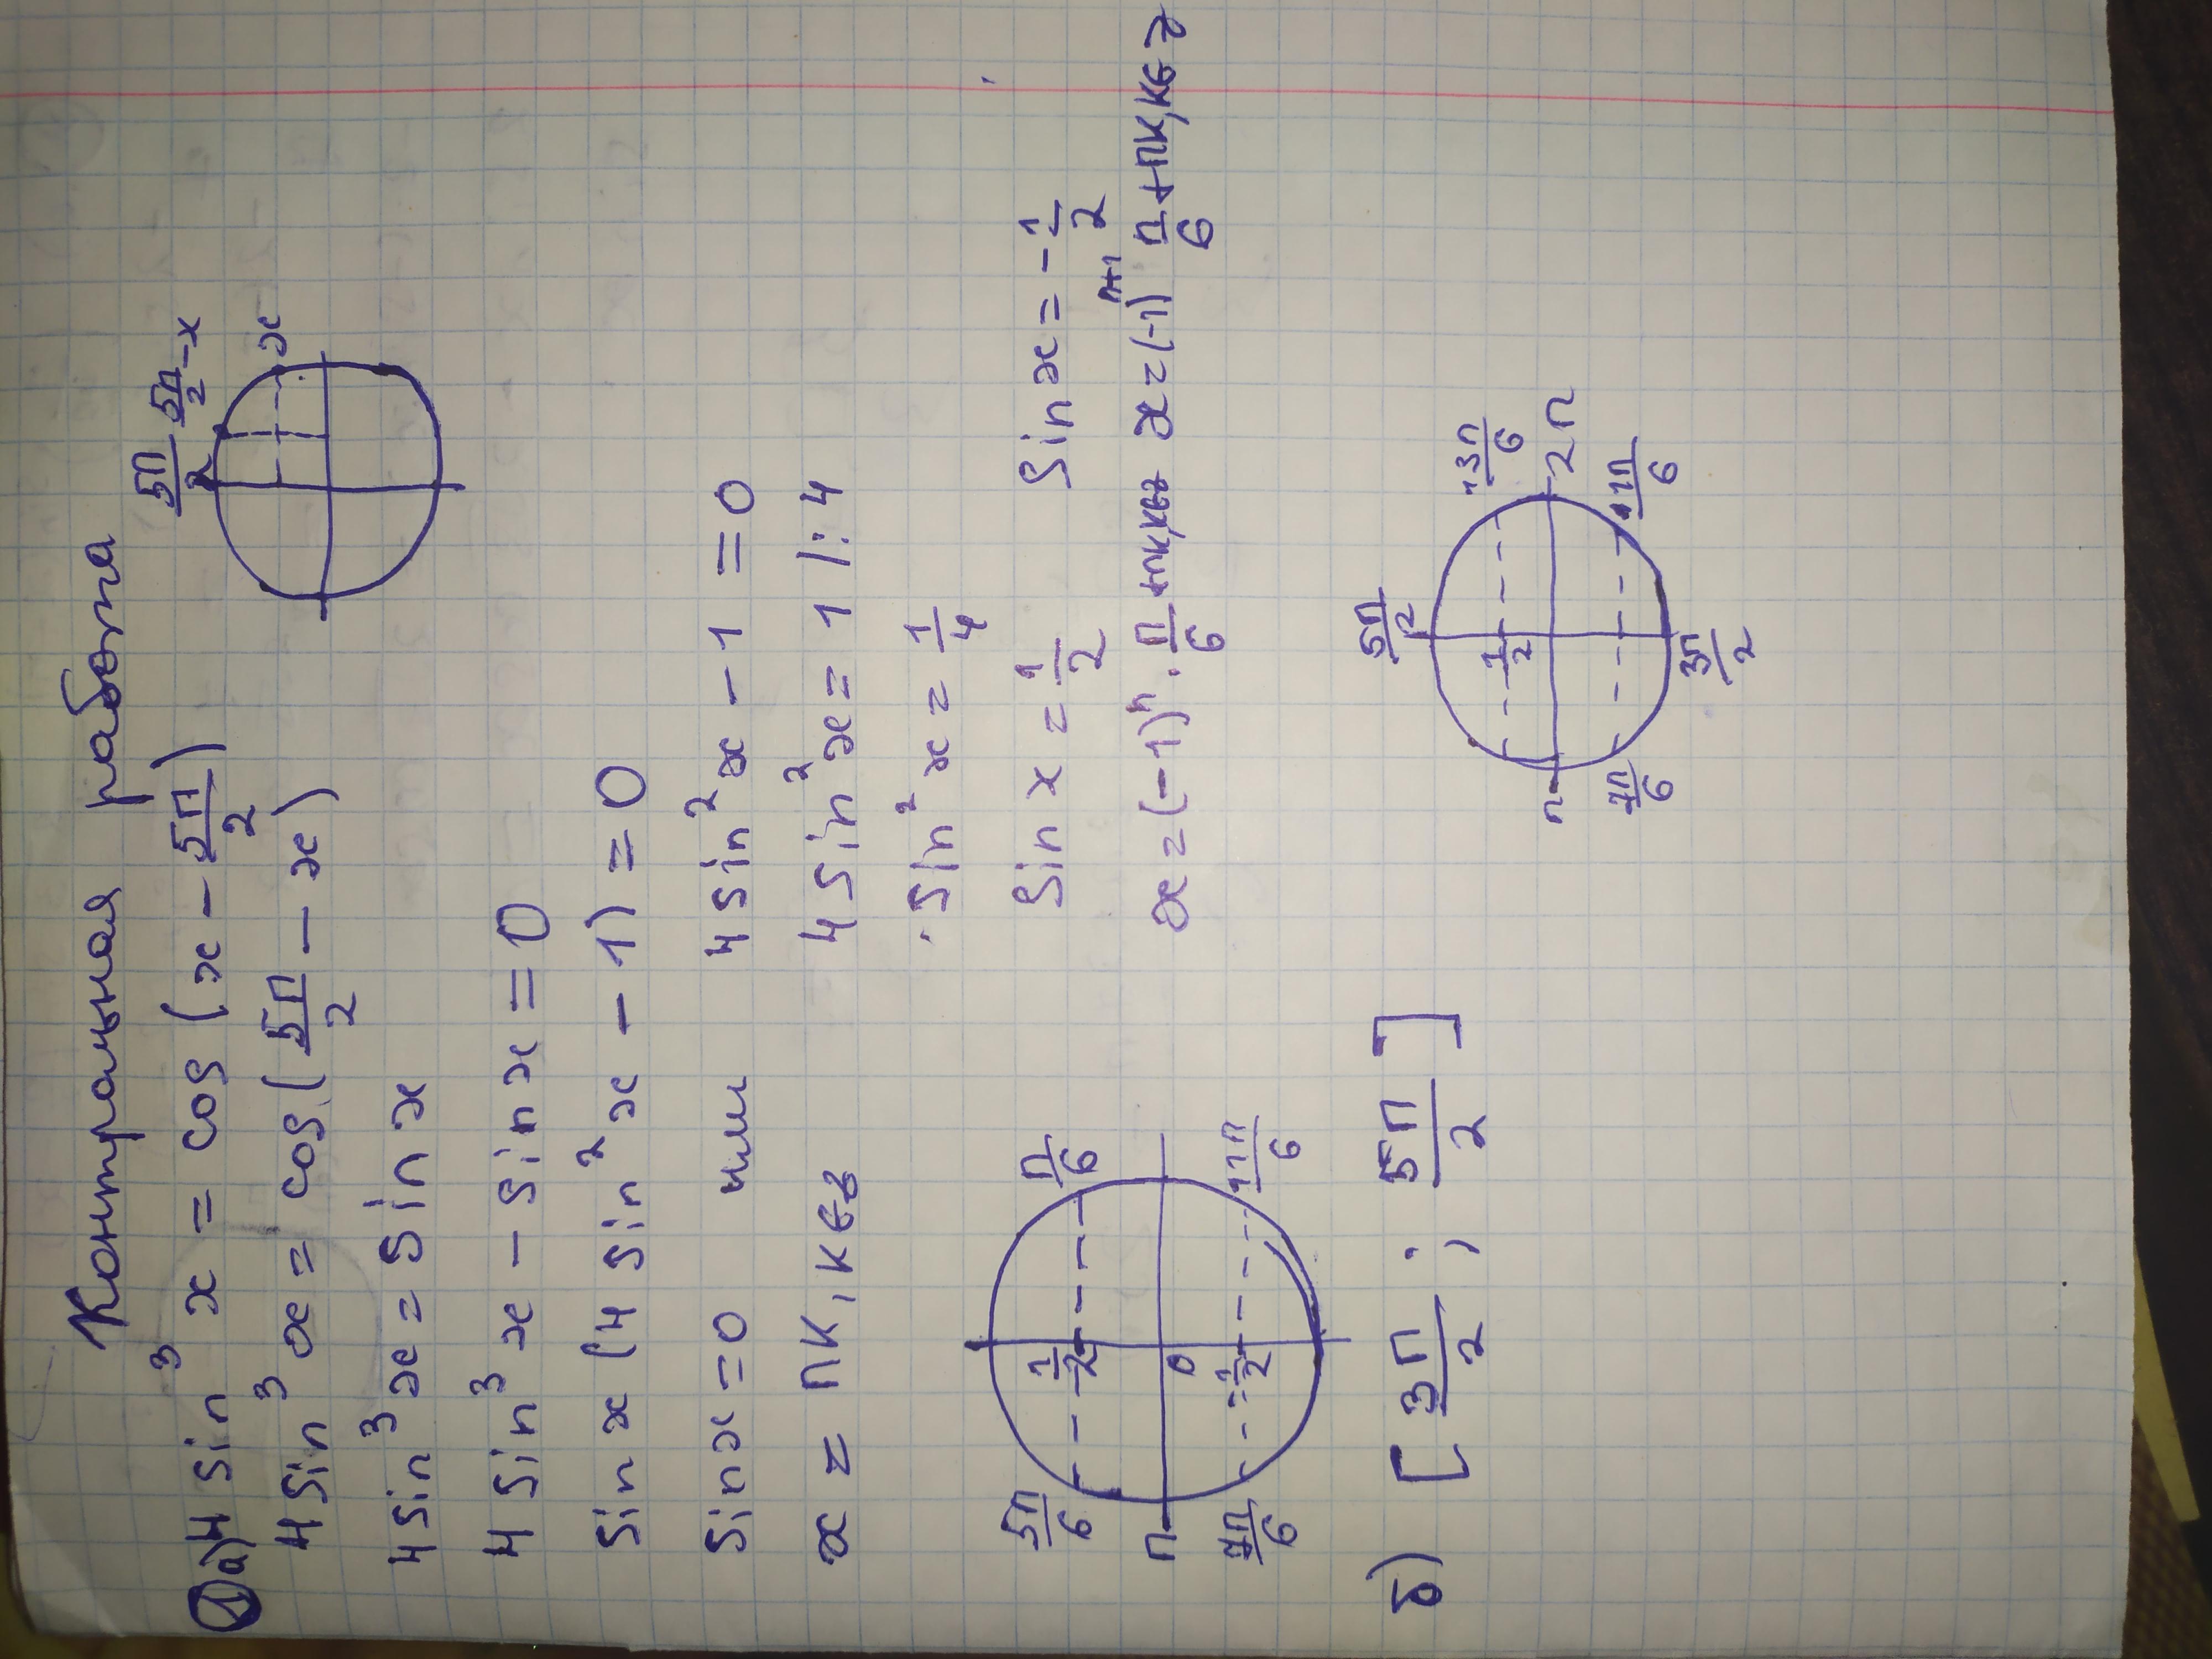 Контрольная работа
① а) 4 sin³ x = cos (x - 5π/2)
4 sin³ x = cos (5π/2 - x)
4 sin³ x = sin x
4 sin³ x - sin x = 0
sin x (4 sin² x - 1) = 0
sin x = 0 или 4 sin² x - 1 = 0
x = πk, k∈z 4 sin² x = 1 |:4
sin² x = 1/4
sin x = 1/2 sin x = -1/2
x = (-1)ⁿ · π/6 + πk, k∈z x = (-1)ⁿ⁺¹ π/6 + πk, k∈z
5π/2 5π/2 - x
x
5π/6 1/2 π/6
π 0
7π/6 -1/2 11π/6
б) [3π/2 ; 5π/2]
5π/2
1/2 13π/6
π 2π
7π/6 11π/6
3π/2